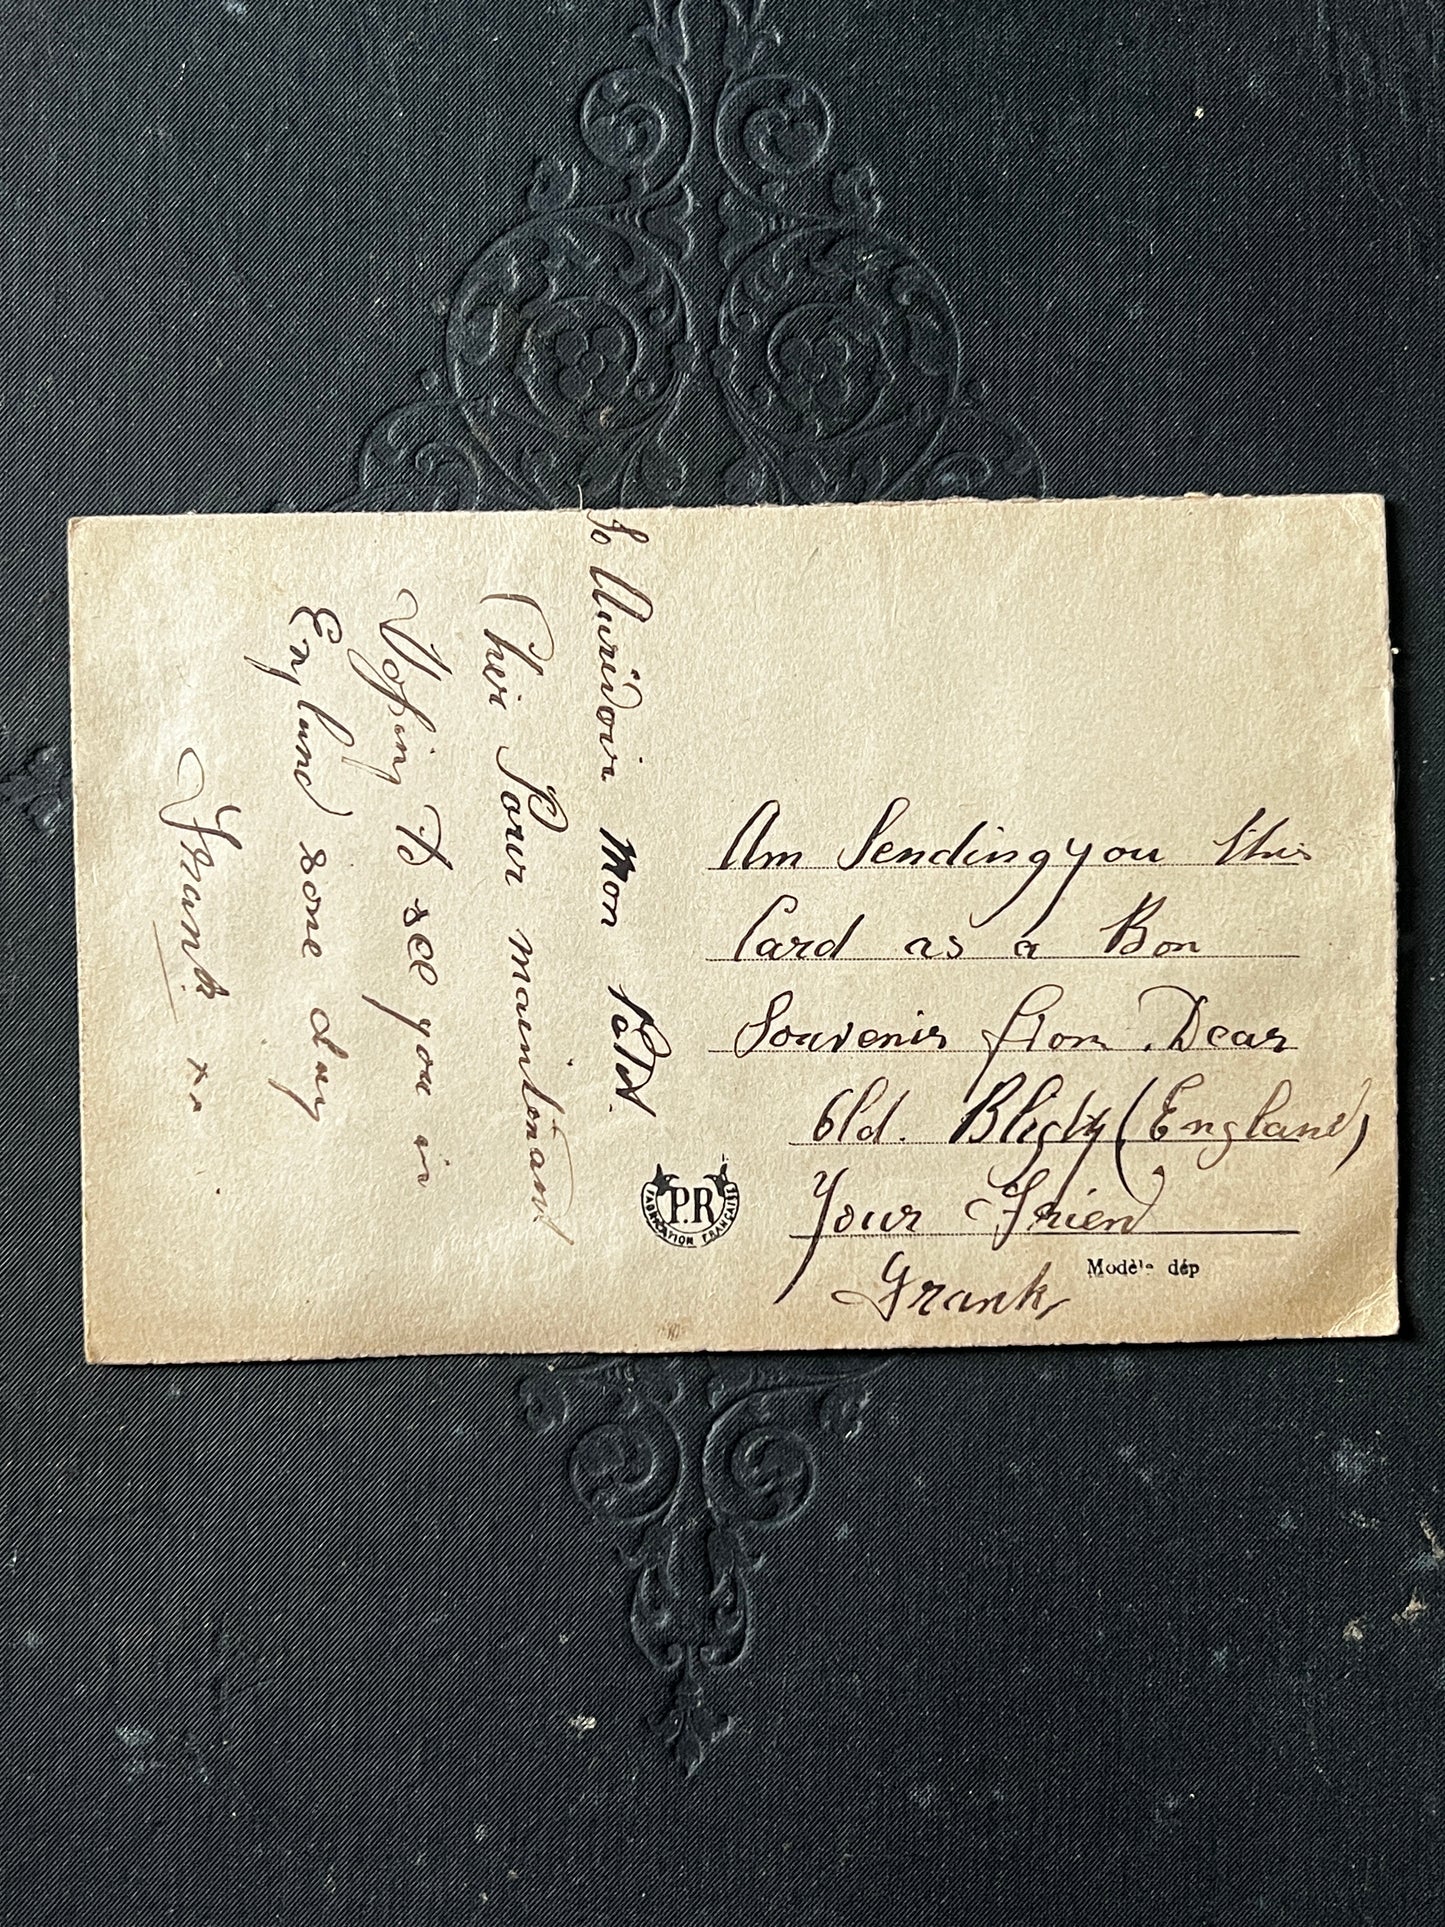 Am Sending you this
Card as a Bon
Souvenir from Dear
Old. Blighty (England)
Your Friend
Frank
So Aurivoir Mon
Cher Pour maintenant
Hoping to see you in
England some day
Frank xx
P.R
FABRICATION FRANÇAISE
Modèle dép